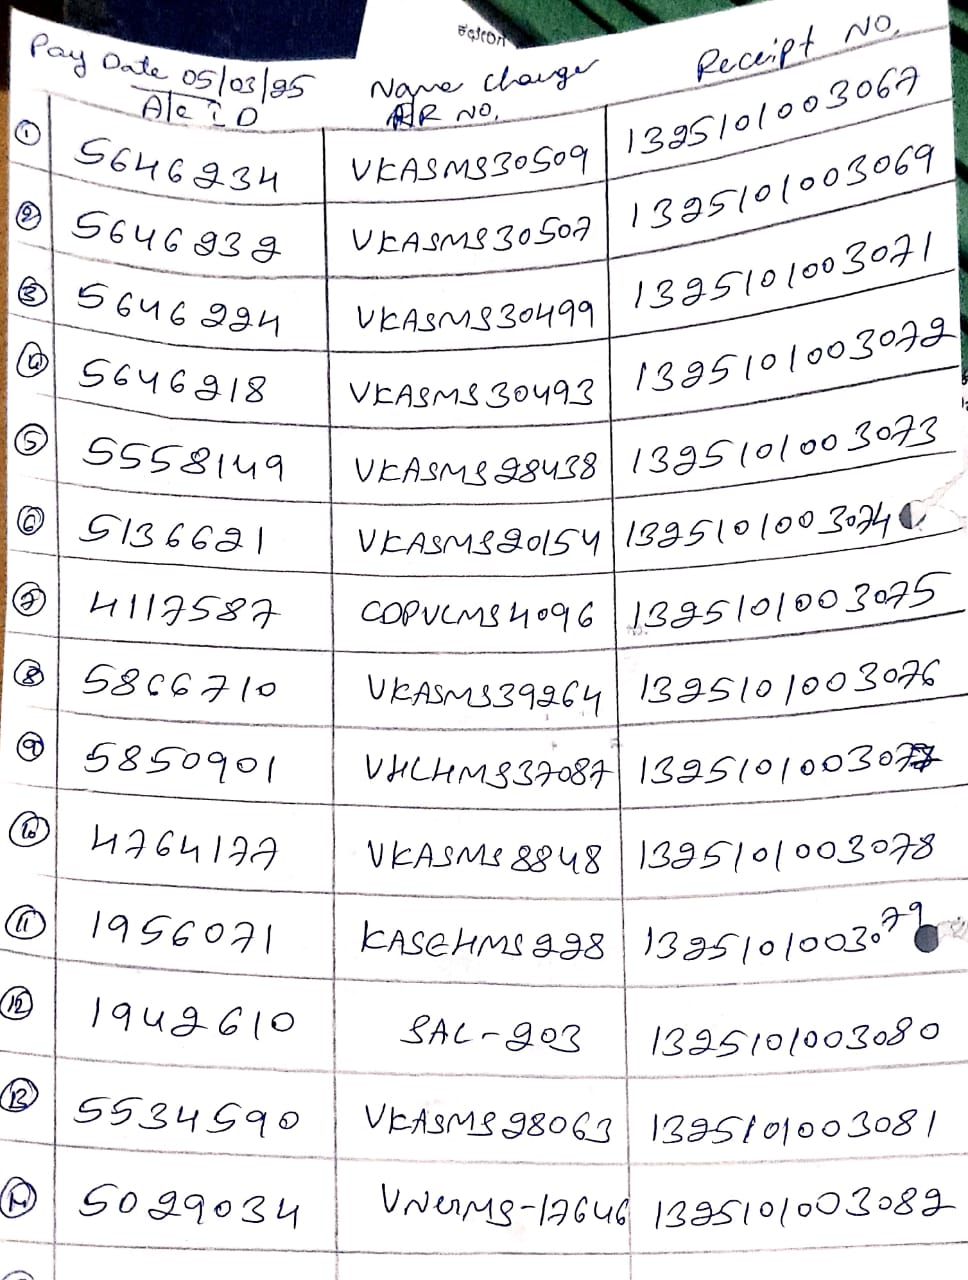 Falcon
Pay Date 05/03/25 Name Change Receipt NO.
A/c ID RR NO.
1 5646234 VKASMS30509 1325101003067
2 5646232 VKASMS30507 1325101003069
3 5646224 VKASMS30499 1325101003071
4 5646218 VKASMS30493 1325101003072
5 5558149 VKASMS28438 1325101003073
6 5136621 VKASMS20154 1325101003074
7 4117587 COPVLMS4096 1325101003075
8 5866710 VKASMS39264 1325101003076
9 5850901 VHLHMS37087 1325101003077
10 4764177 VKASMS8848 1325101003078
11 1956071 KASGHMS228 1325101003079
12 1942610 SAL-203 1325101003080
13 5534590 VKASMS28063 1325101003081
14 5029034 1325101003082